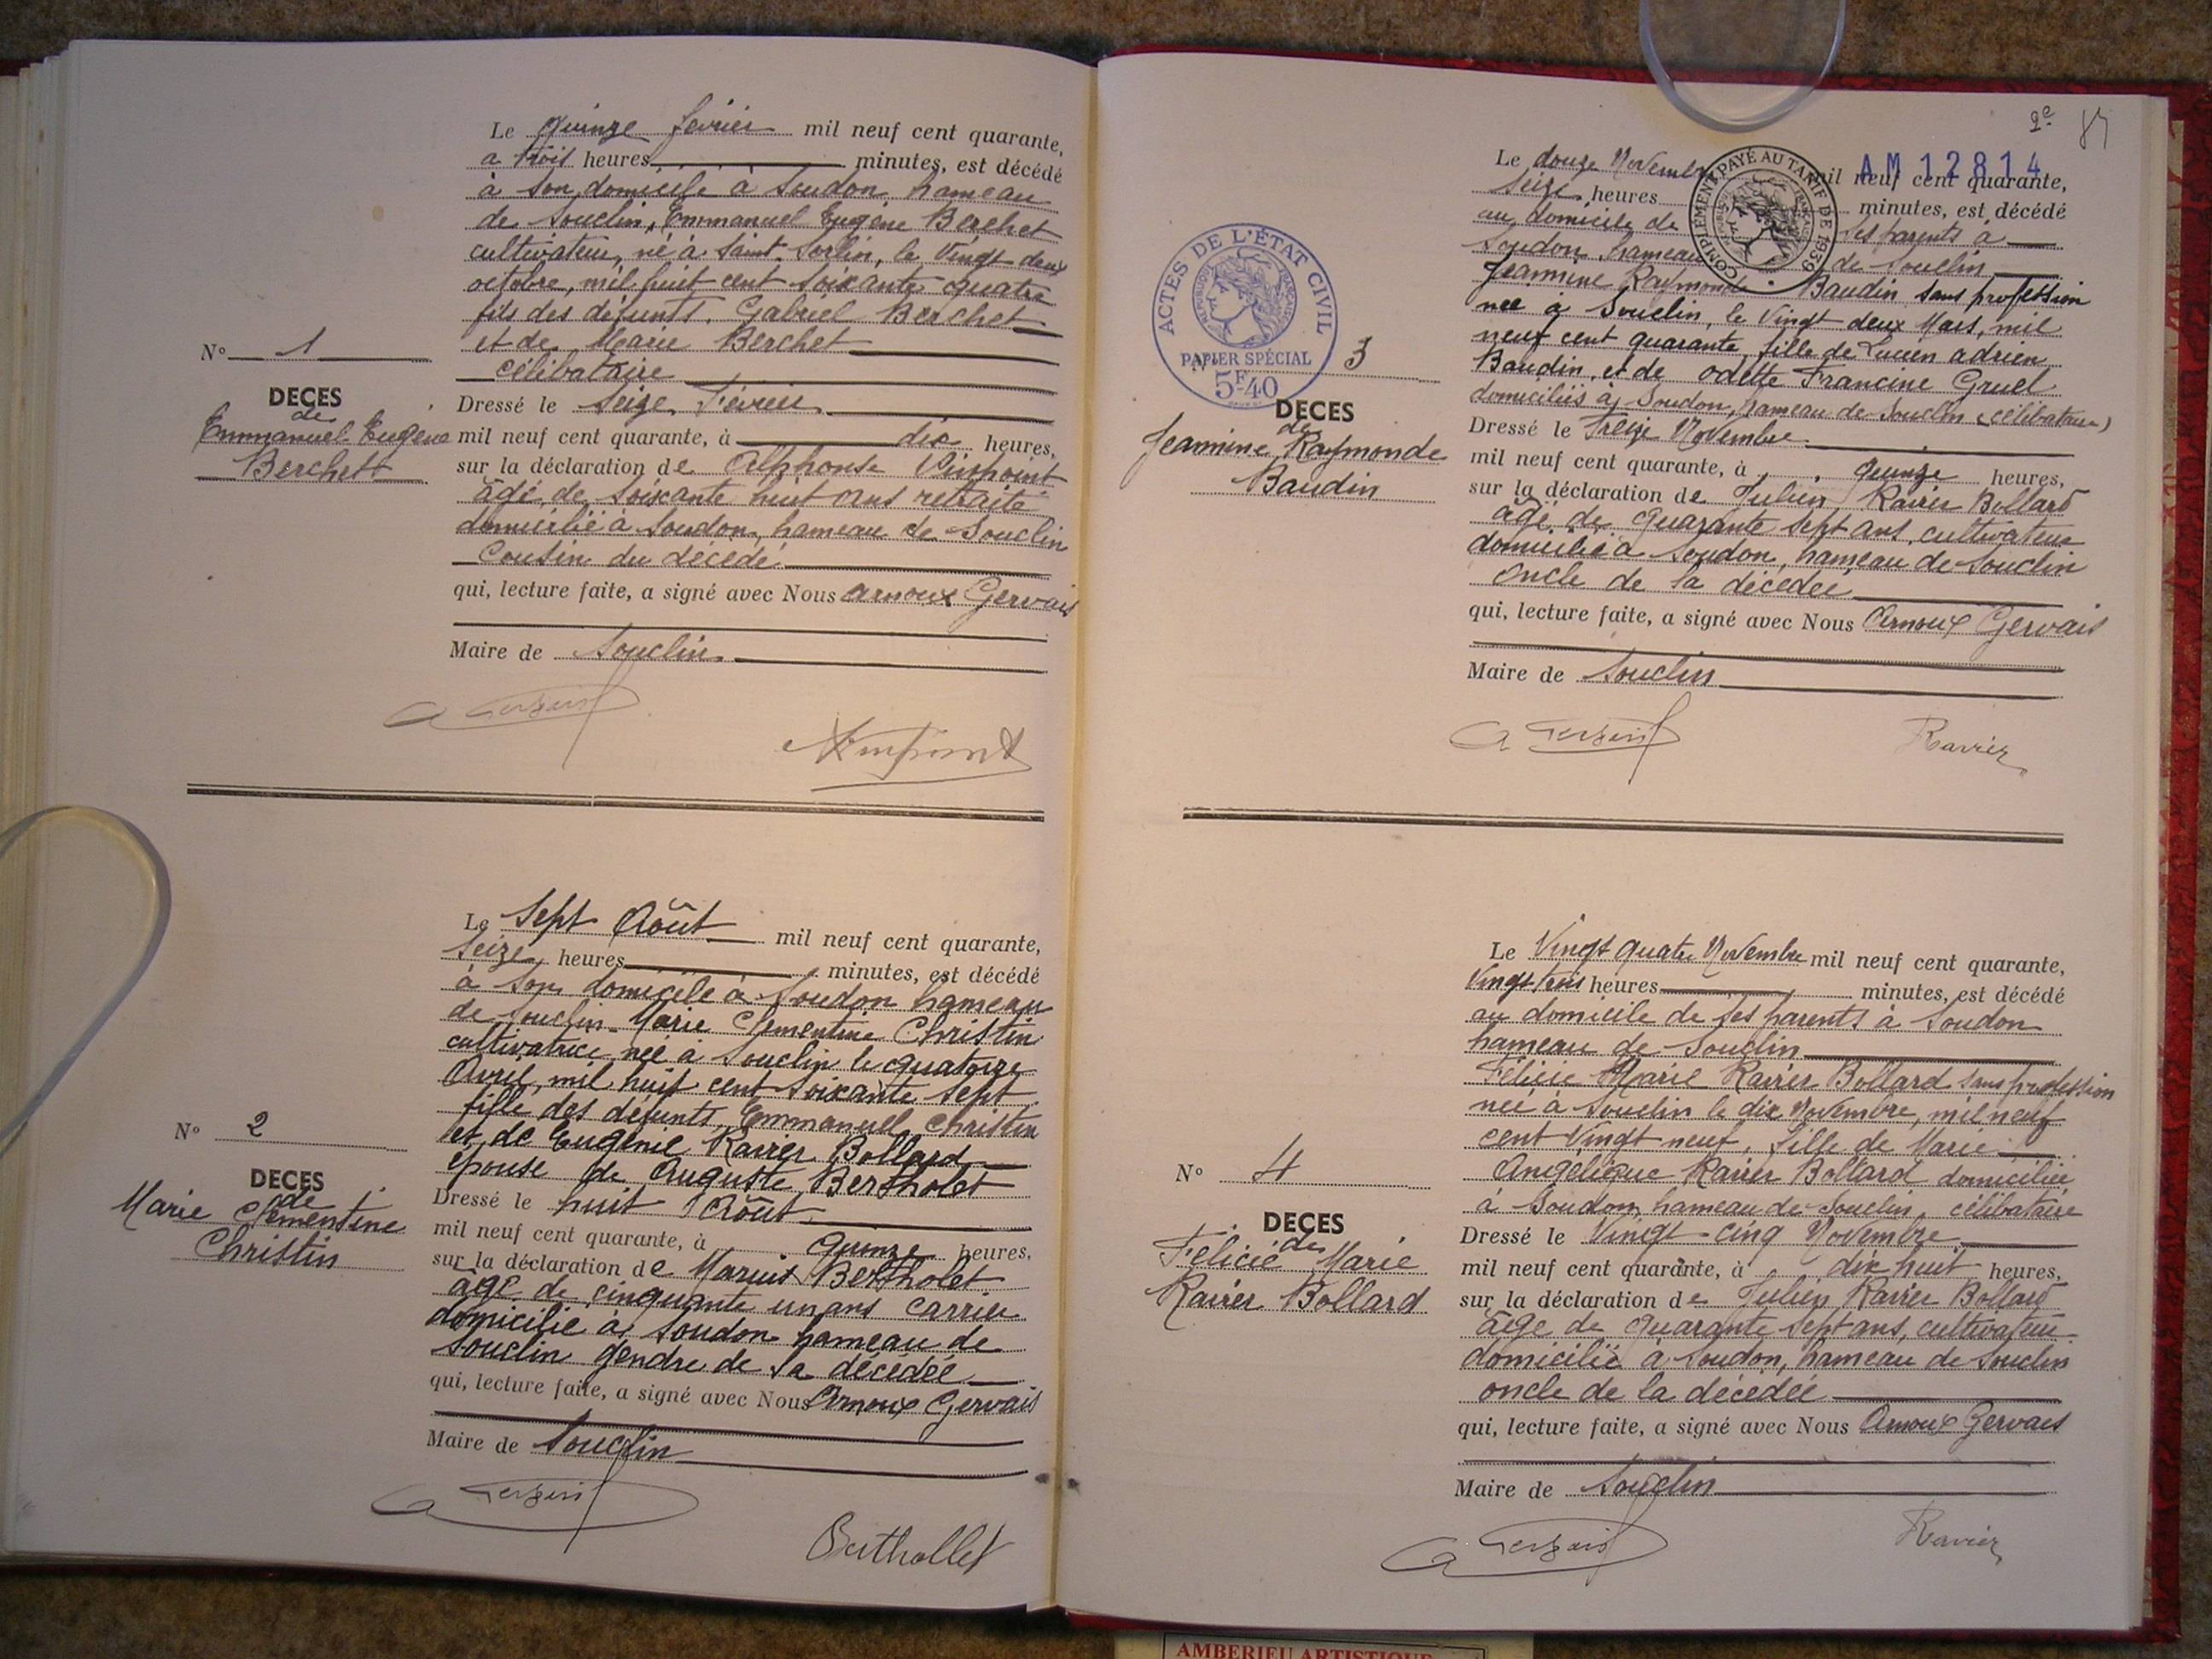 Le quinze février mil neuf cent quarante,
a trois heures minutes, est décédé
à son domicile à Soudon hameau
de Souclin, Emmanuel Eugène Berchet
cultivateur, né à Saint-Sorlin, le Vingt-deux
octobre, mil huit cent soixante quatre
fils des défunts, Gabriel Berchet
et de Marie Berchet
célibataire
N° 1
DECES
de
Emmanuel Eugène
Berchet
Dressé le seize Février
mil neuf cent quarante, à dix heures,
sur la déclaration de Alphonse
âgé de soixante huit ans retraité
domicilié à Soudon, hameau de Souclin
Cousin du décédé
qui, lecture faite, a signé avec Nous Arnoux Gervais
Maire de Souclin
Le Sept Août mil neuf cent quarante,
seize heures minutes, est décédé
à son domicile à Soudon hameau
de Souclin Marie Clementine Christin
cultivatrice née à Souclin le quatorze
Avril, mil huit cent soixante sept
fille des défunts, Emmanuel Christin
et de Eugénie Ravier Bollard
épouse de Auguste Bertholet
N° 2
DECES
de
Marie Clementine
Christin
Dressé le huit Août
mil neuf cent quarante, à quinze heures,
sur la déclaration de Marius Bertholet
âgé de cinquante un ans carrier
domicilié à Soudon hameau de
Souclin gendre de la décédée
qui, lecture faite, a signé avec Nous Arnoux Gervais
Maire de Souclin
Berthollet
2e
AM 12814
COMPLÉMENT PAYÉ AU TARIF DE 1939
ACTES DE L'ÉTAT CIVIL
RÉPUBLIQUE FRANÇAISE
PAPIER SPÉCIAL
5F40
Le douze Novembre mil neuf cent quarante,
seize heures minutes, est décédé
au domicile de ses parents à
Soudon, hameau de Souclin
Jeannine Raymonde Baudin sans profession
née à Souclin, le Vingt deux Mars, mil
neuf cent quarante, fille de Lucien adrien
Baudin, et de odette Francine Gruel
domiciliés à Soudon, hameau de Souclin (célibataire)
N° 3
DECES
de
Jeannine Raymonde
Baudin
Dressé le Treize Novembre
mil neuf cent quarante, à quinze heures,
sur la déclaration de Julien Ravier Bollard
âgé de quarante sept ans, cultivateur
domicilié à Soudon, hameau de Souclin
oncle de la décédée
qui, lecture faite, a signé avec Nous Arnoux Gervais
Maire de Souclin
Ravier
Le Vingt quatre Novembre mil neuf cent quarante,
Vingt trois heures minutes, est décédé
au domicile de ses parents à Soudon
hameau de Souclin
Félicie Marie Ravier Bollard sans profession
née à Souclin le dix Novembre, mil neuf
cent Vingt neuf, fille de Marie
Angélique Ravier Bollard domiciliée
à Soudon, hameau de Souclin, célibataire
N° 4
DECES
de
Félicie Marie
Ravier Bollard
Dressé le Vingt-cinq Novembre
mil neuf cent quarante, à dix huit heures,
sur la déclaration de Julien Ravier Bollard
âgé de quarante sept ans, cultivateur
domicilié à Soudon, hameau de Souclin
oncle de la décédée
qui, lecture faite, a signé avec Nous Arnoux Gervais
Maire de Souclin
Ravier
AMBERIEU ARTISTIQUE